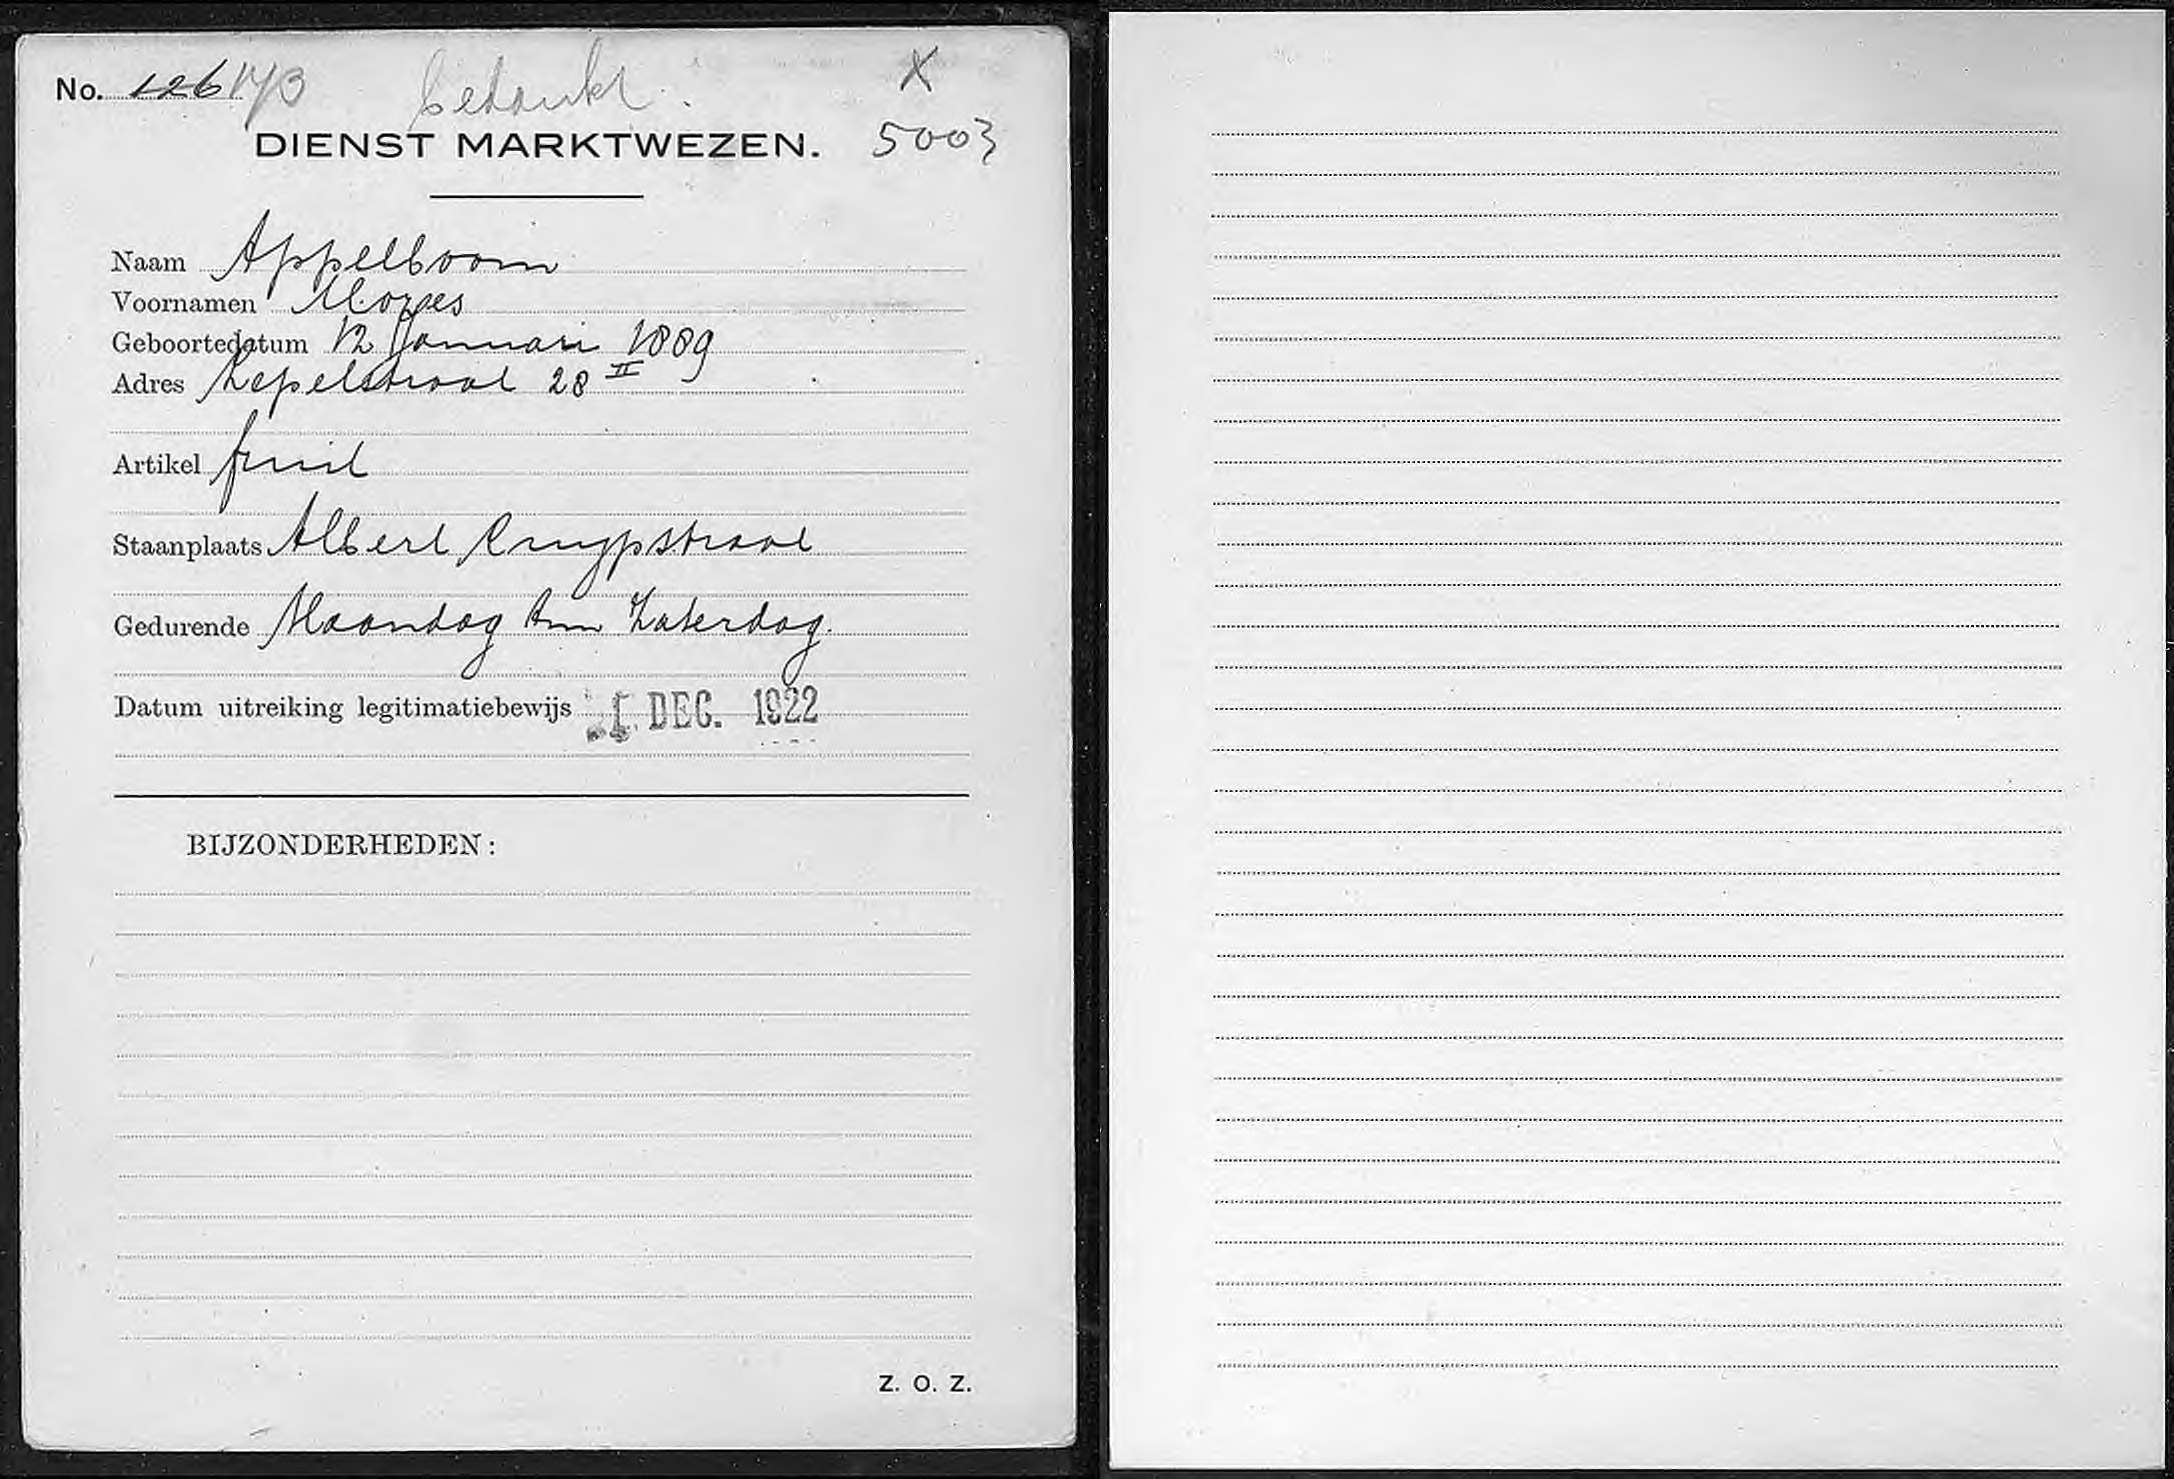 No. 126 17/3 bedankt.
X
DIENST MARKTWEZEN. 5003
Naam Appelboom
Voornamen Mozes
Geboortedatum 12 Januari 1889
Adres Lepelstraat 28 II
Artikel fruit
Staanplaats Albert Cuypstraat
Gedurende Maandag t/m Zaterdag.
Datum uitreiking legitimatiebewijs DEC. 1922
BIJZONDERHEDEN:
Z. O. Z.